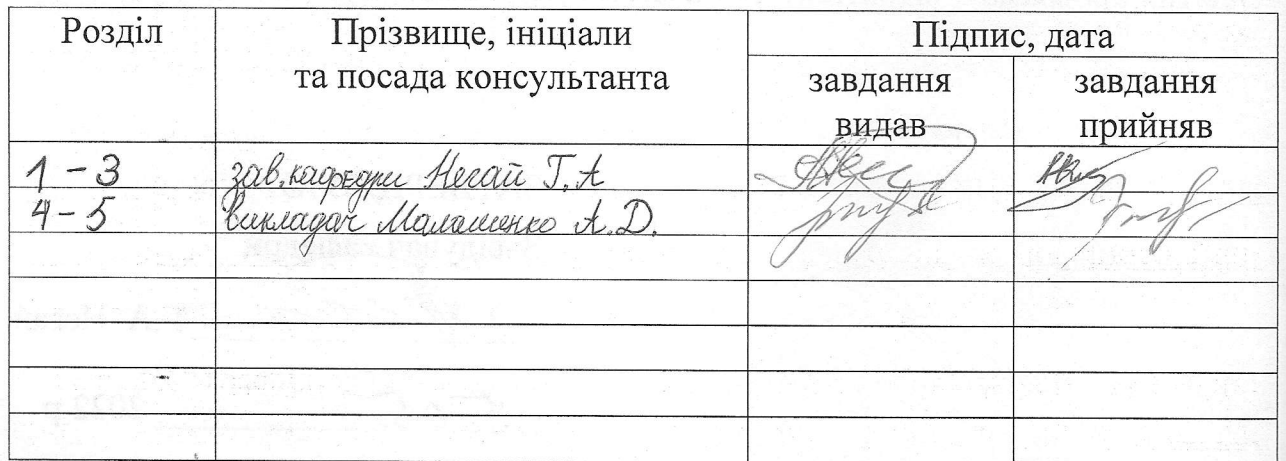 Розділ
Прізвище, ініціали
та посада консультанта
Підпис, дата
завдання
видав
завдання
прийняв
1-3
зав.кафедри Негай Г.А
4-5
викладач Малашенко А.Д.